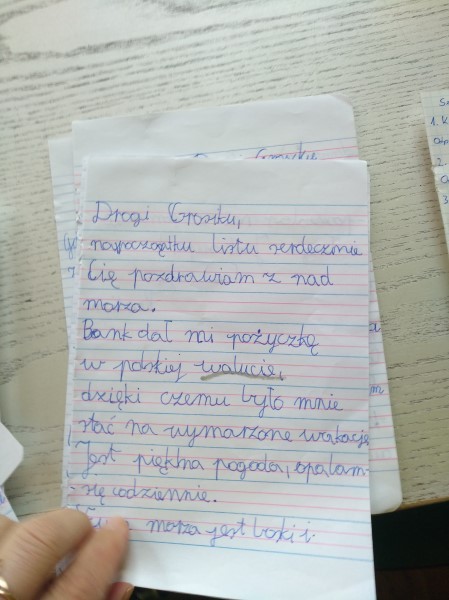 Drogi Grosiku,
na początku listu serdecznie
Cię pozdrawiam z nad
morza.
Bank dał mi pożyczkę
w polskiej walucie,
dzięki czemu było mnie
stać na wymarzone wakacje.
Jest piękna pogoda, opalam
się codziennie.
morza jest boski i